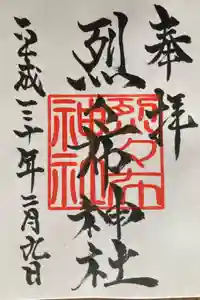 奉拝
烈々布神社
平成三十年二月九日
烈々布
神社